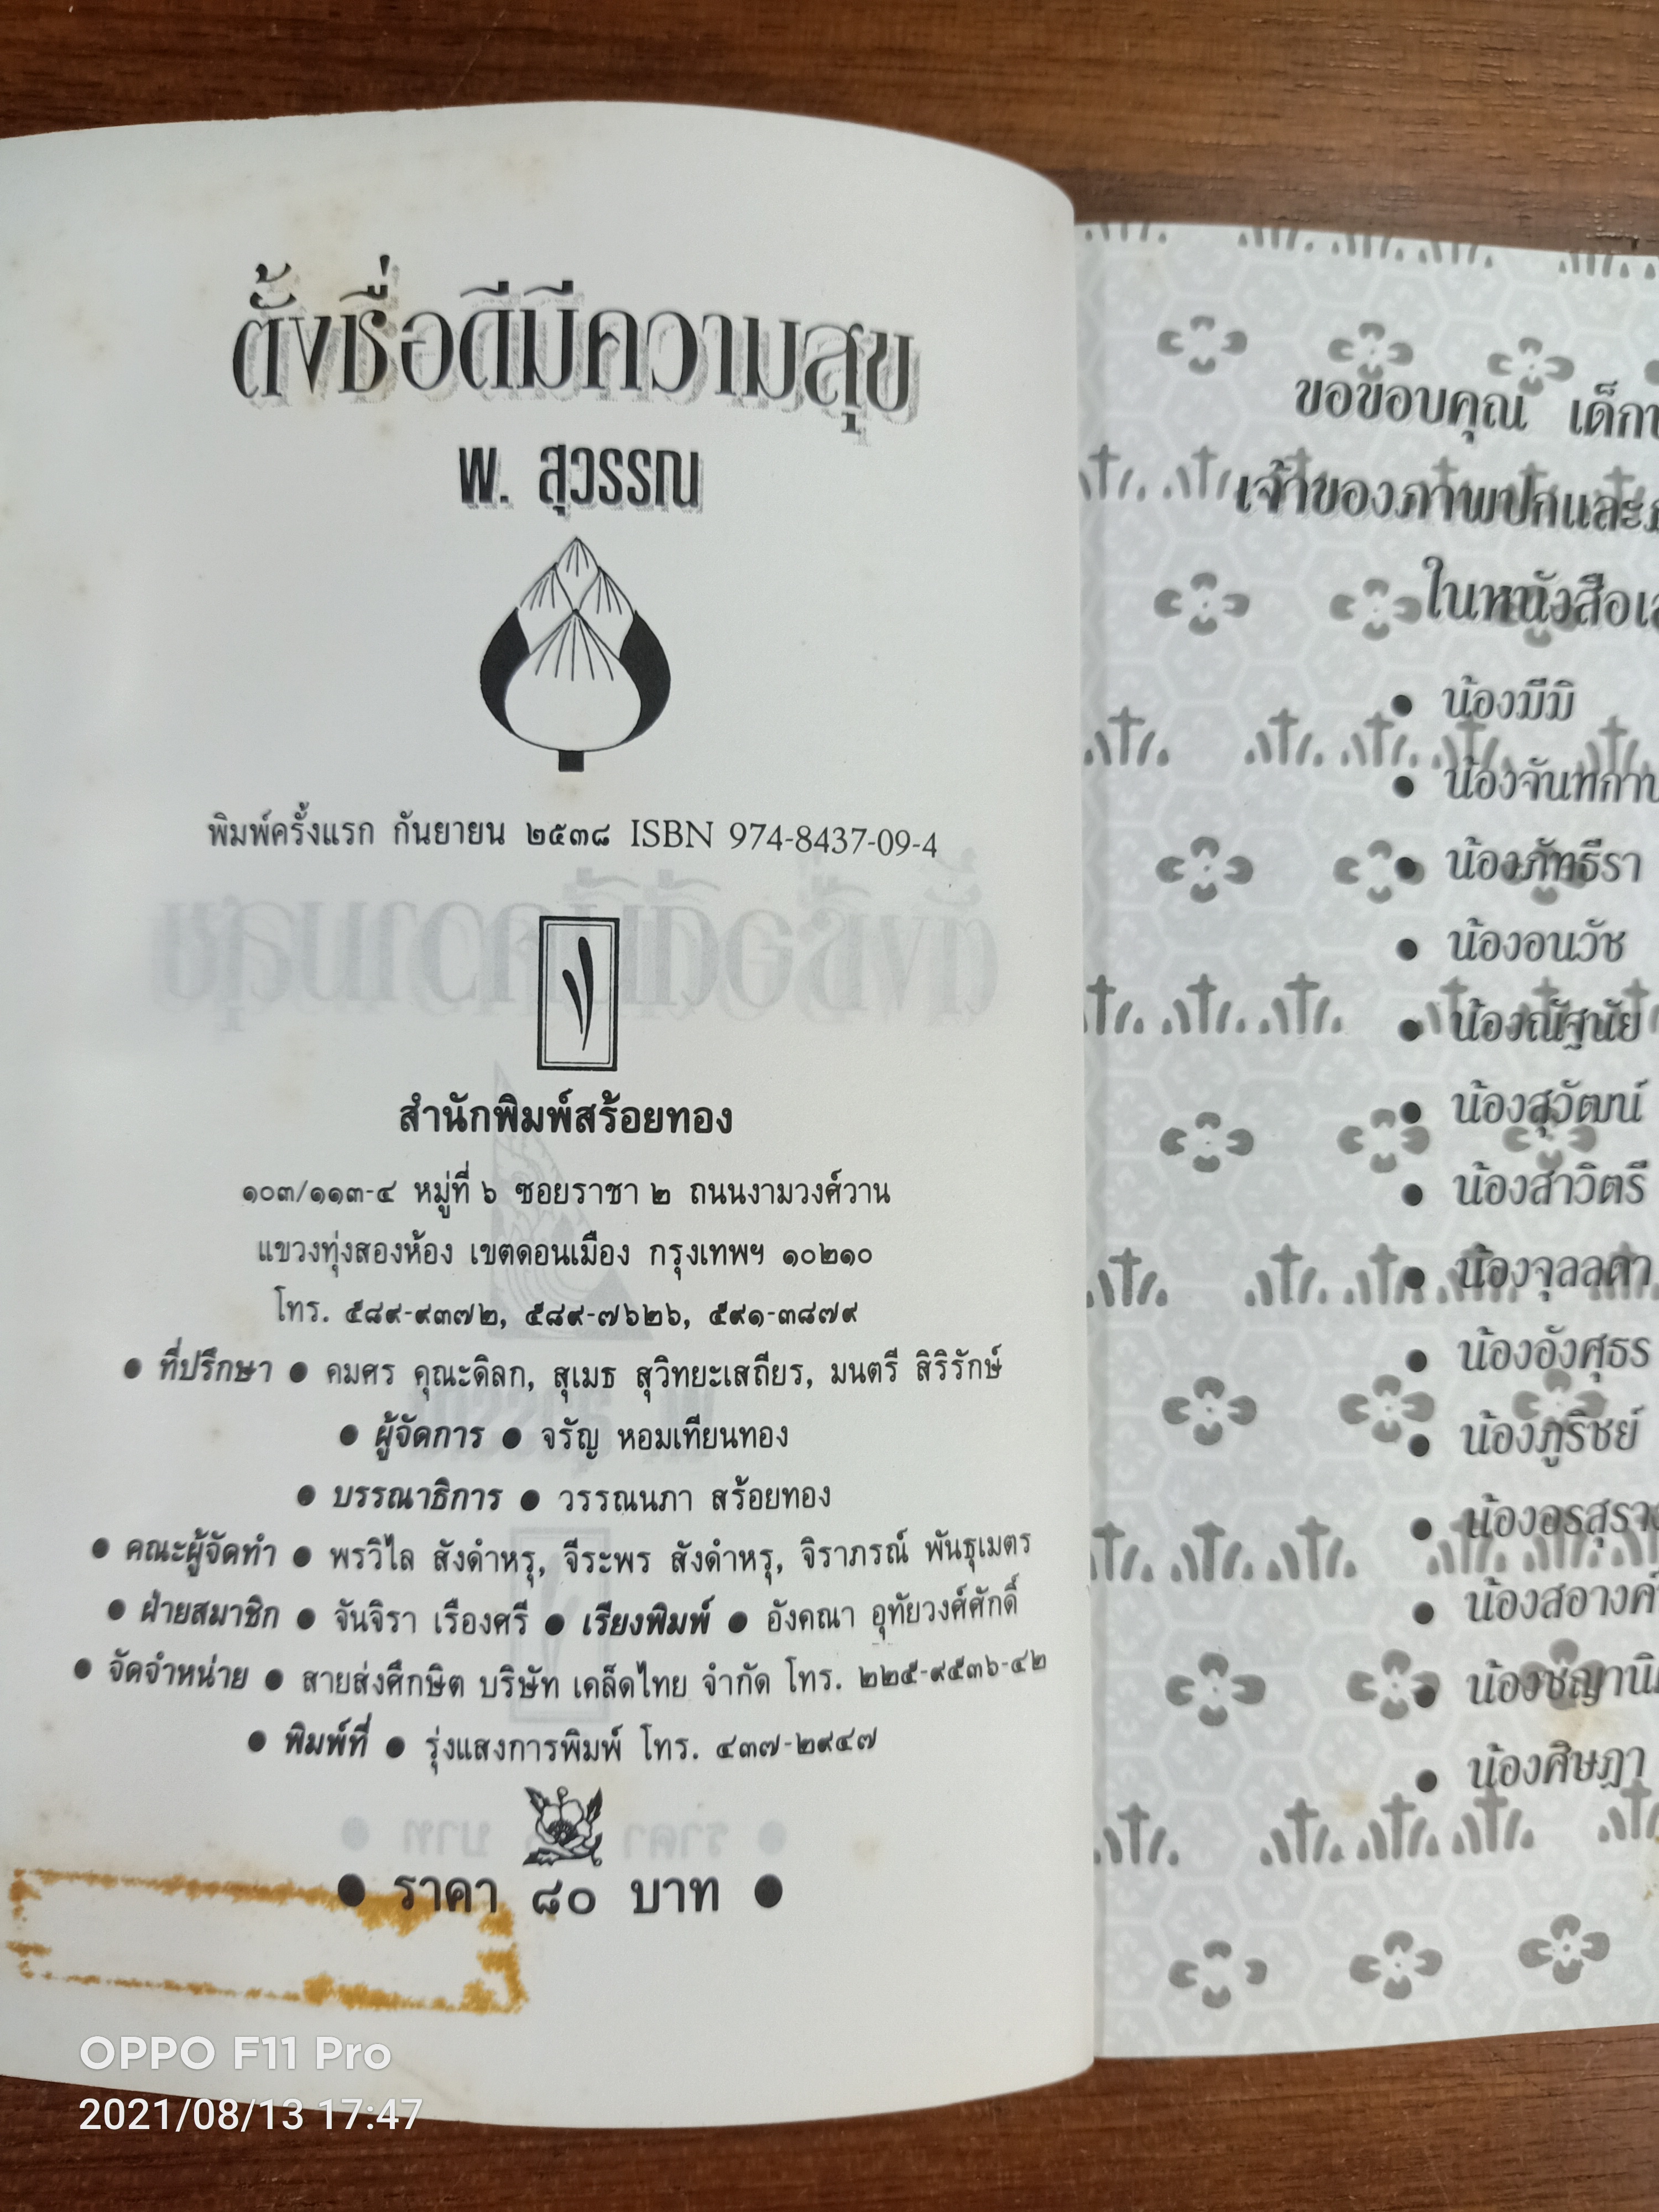 ตั้งชื่อดีมีความสุข
พ. สุวรรณ
พิมพ์ครั้งแรก กันยายน ๒๕๓๘ ISBN 974-8437-09-4
สำนักพิมพ์สร้อยทอง
๑๐๓/๑๑๓-๔ หมู่ที่ ๖ ซอยราชา ๒ ถนนงามวงศ์วาน
แขวงทุ่งสองห้อง เขตดอนเมือง กรุงเทพฯ ๑๐๒๑๐
โทร. ๕๘๙-๙๓๗๒, ๕๘๙-๗๖๒๖, ๕๙๑-๓๘๗๙
● ที่ปรึกษา ● คมศร คุณะดิลก, สุเมธ สุวิทยะเสถียร, มนตรี สิริรักษ์
● ผู้จัดการ ● จรัญ หอมเทียนทอง
● บรรณาธิการ ● วรรณนภา สร้อยทอง
● คณะผู้จัดทำ ● พรวิไล สังดำหรุ, จีระพร สังดำหรุ, จิราภรณ์ พันธุเมตร
● ฝ่ายสมาชิก ● จันจิรา เรืองศรี ● เรียงพิมพ์ ● อังคณา อุทัยวงศ์ศักดิ์
● จัดจำหน่าย ● สายส่งศึกษิต บริษัท เคล็ดไทย จำกัด โทร. ๒๒๕-๙๕๓๖-๔๒
● พิมพ์ที่ ● รุ่งแสงการพิมพ์ โทร. ๔๓๗-๒๙๔๗
● ราคา ๘๐ บาท ●
ขอขอบคุณ
เจ้าของภาพปกและ
ในหนังสือ
● น้องมีมิ
● น้องภัทธีรา
● น้องอนวัช
● น้องณัฐนัย
● น้องสุวัฒน์
● น้องสาวิตรี
● น้องจุลลดา
● น้องอังศุธร
● น้องภูริชย์
● น้องศิษฎา
OPPO F11 Pro
2021/08/13 17:47